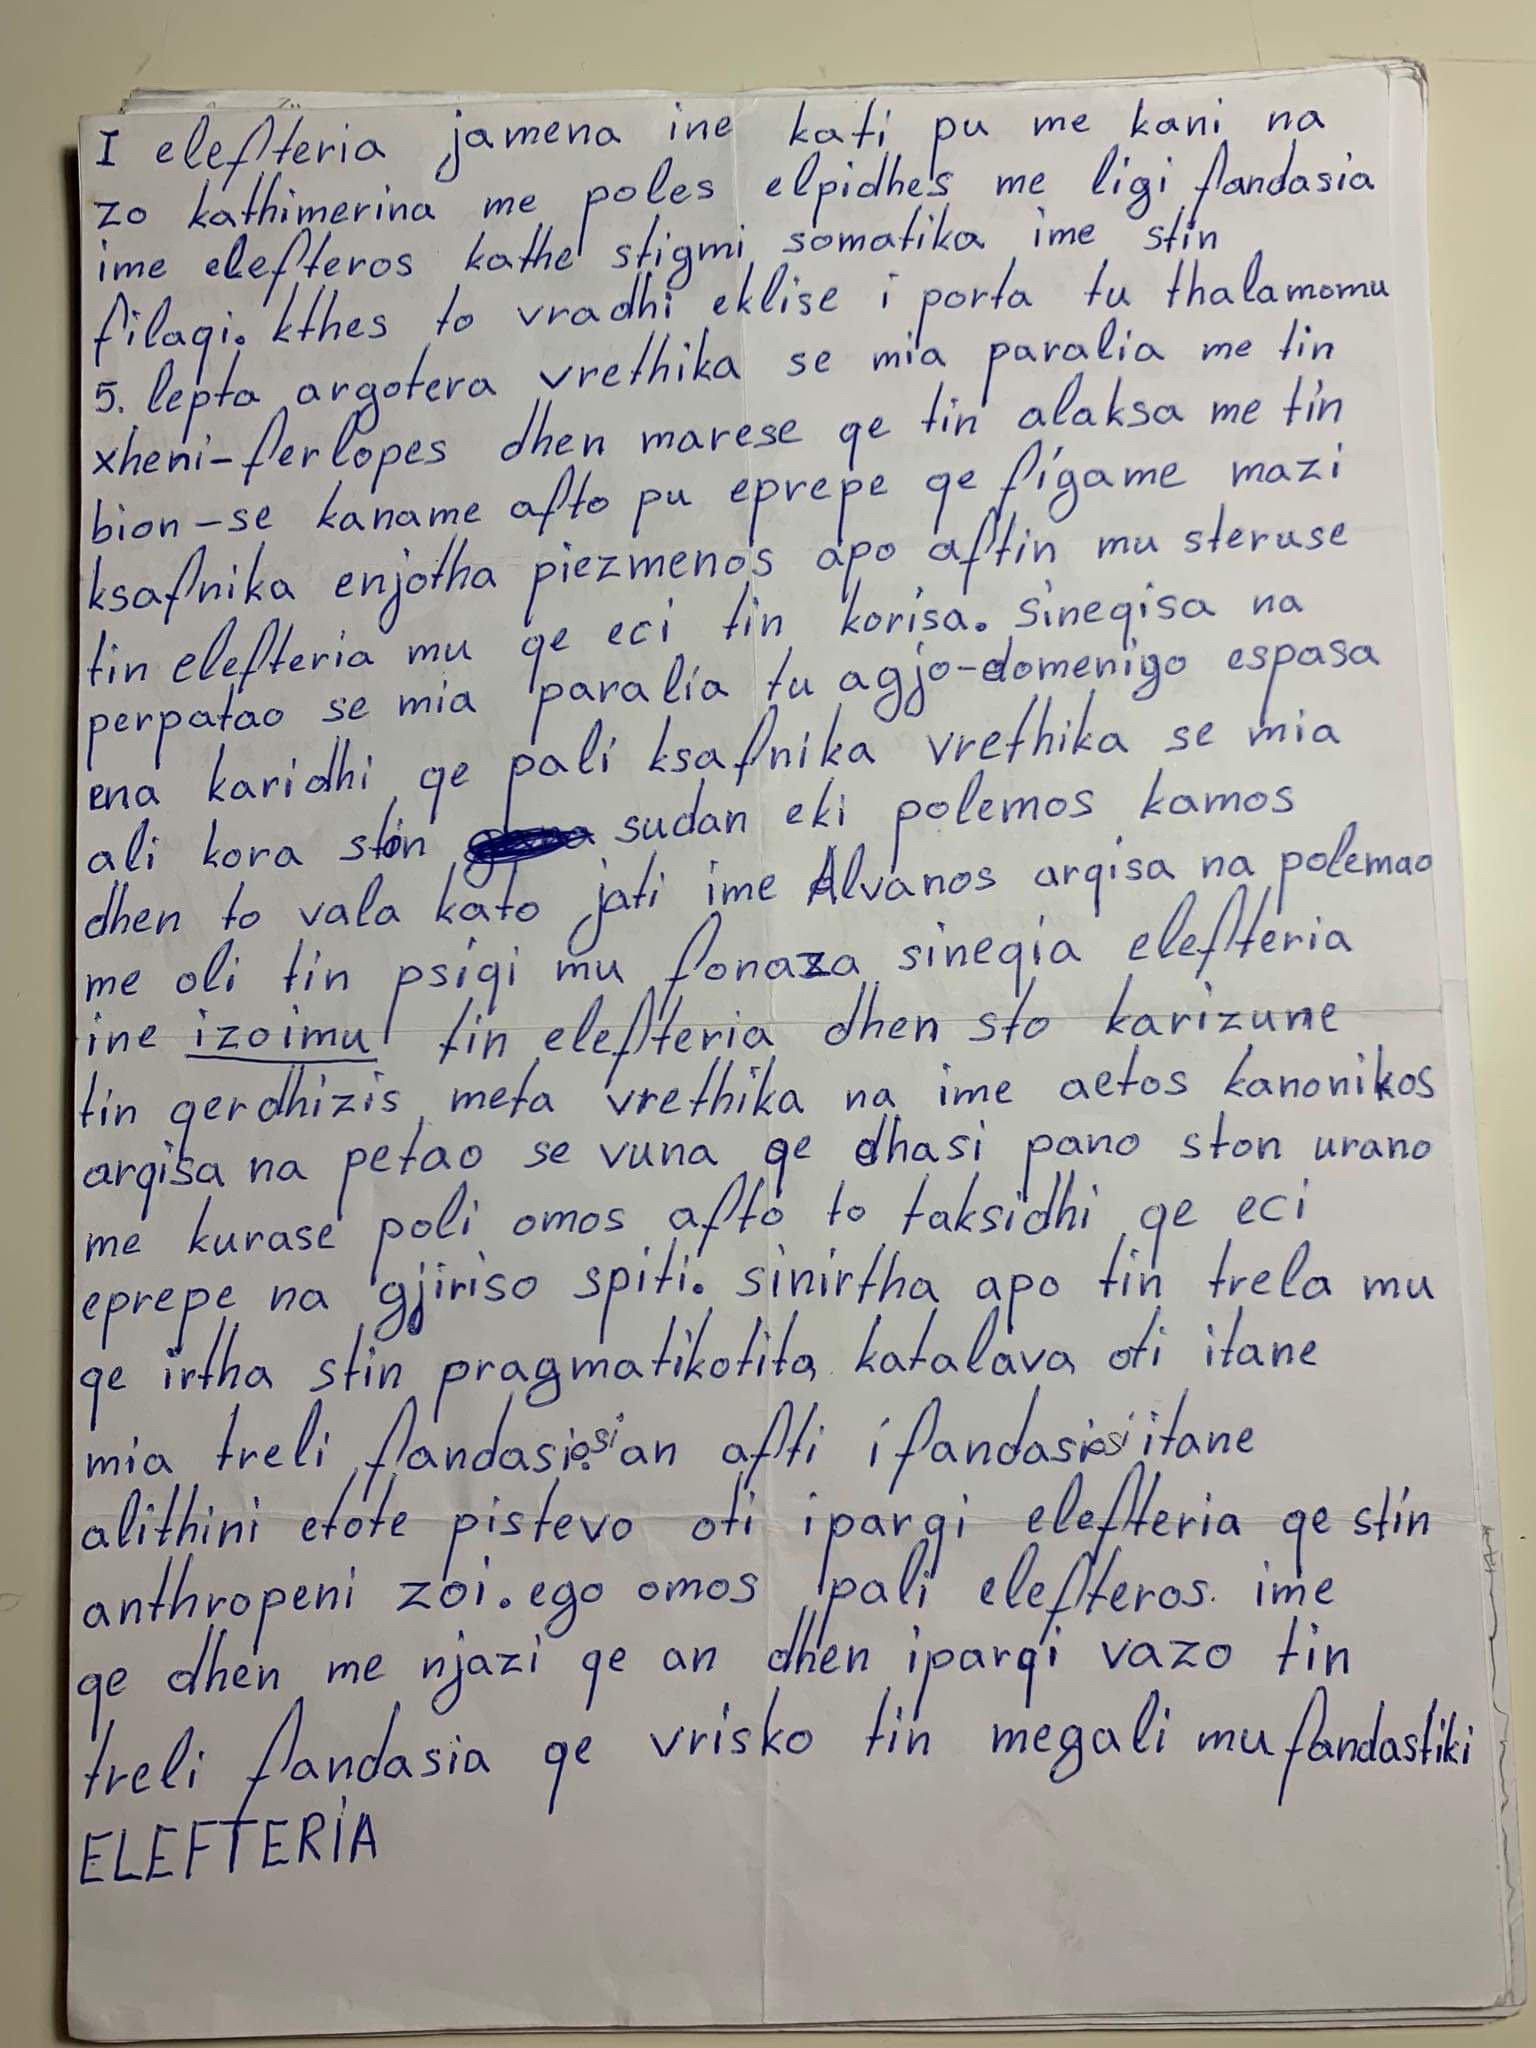 I elefteria jamena ine kati pu me kani na
zo kathimerina me poles elpidhes me ligi fandasia
ime elefteros kathe stigmi somatika ime stin
filaqi. kthes to vradhi eklise i porta tu thalamomu
5. lepta argotera vrethika se mia paralia me tin
xheni-ferlopes dhen marese qe tin alaksa me tin
bion-se kaname afto pu eprepe qe figame mazi
ksafnika enjotha piezmenos apo aftin mu steruse
tin elefteria mu qe eci tin korisa. sineqisa na
perpatao se mia paralia tu agjo-domenigo espasa
ena karidhi qe pali ksafnika vrethika se mia
ali kora stin sudan eki polemos kamos
dhen to vala kato jati ime Alvanos arqisa na polemao
me oli tin psiqi mu fonaza sineqia elefteria
ine izoimu tin elefteria dhen sto karizune
tin qerdhizis meta vrethika na ime aetos kanonikos
arqisa na petao se vuna qe dhasi pano ston urano
me kurase poli omos afto to taksidhi qe eci
eprepe na gjiriso spiti. sinirtha apo tin trela mu
qe irtha stin pragmatikotita katalava oti itane
mia treli fandasiosi an afti i fandasiosi itane
alithini etote pistevo oti ipargi elefteria qe stin
anthropeni zoi. ego omos pali elefteros. ime
qe dhen me njazi qe an dhen iparqi vazo tin
treli fandasia qe vrisko tin megali mu fandastiki
ELEFTERIA